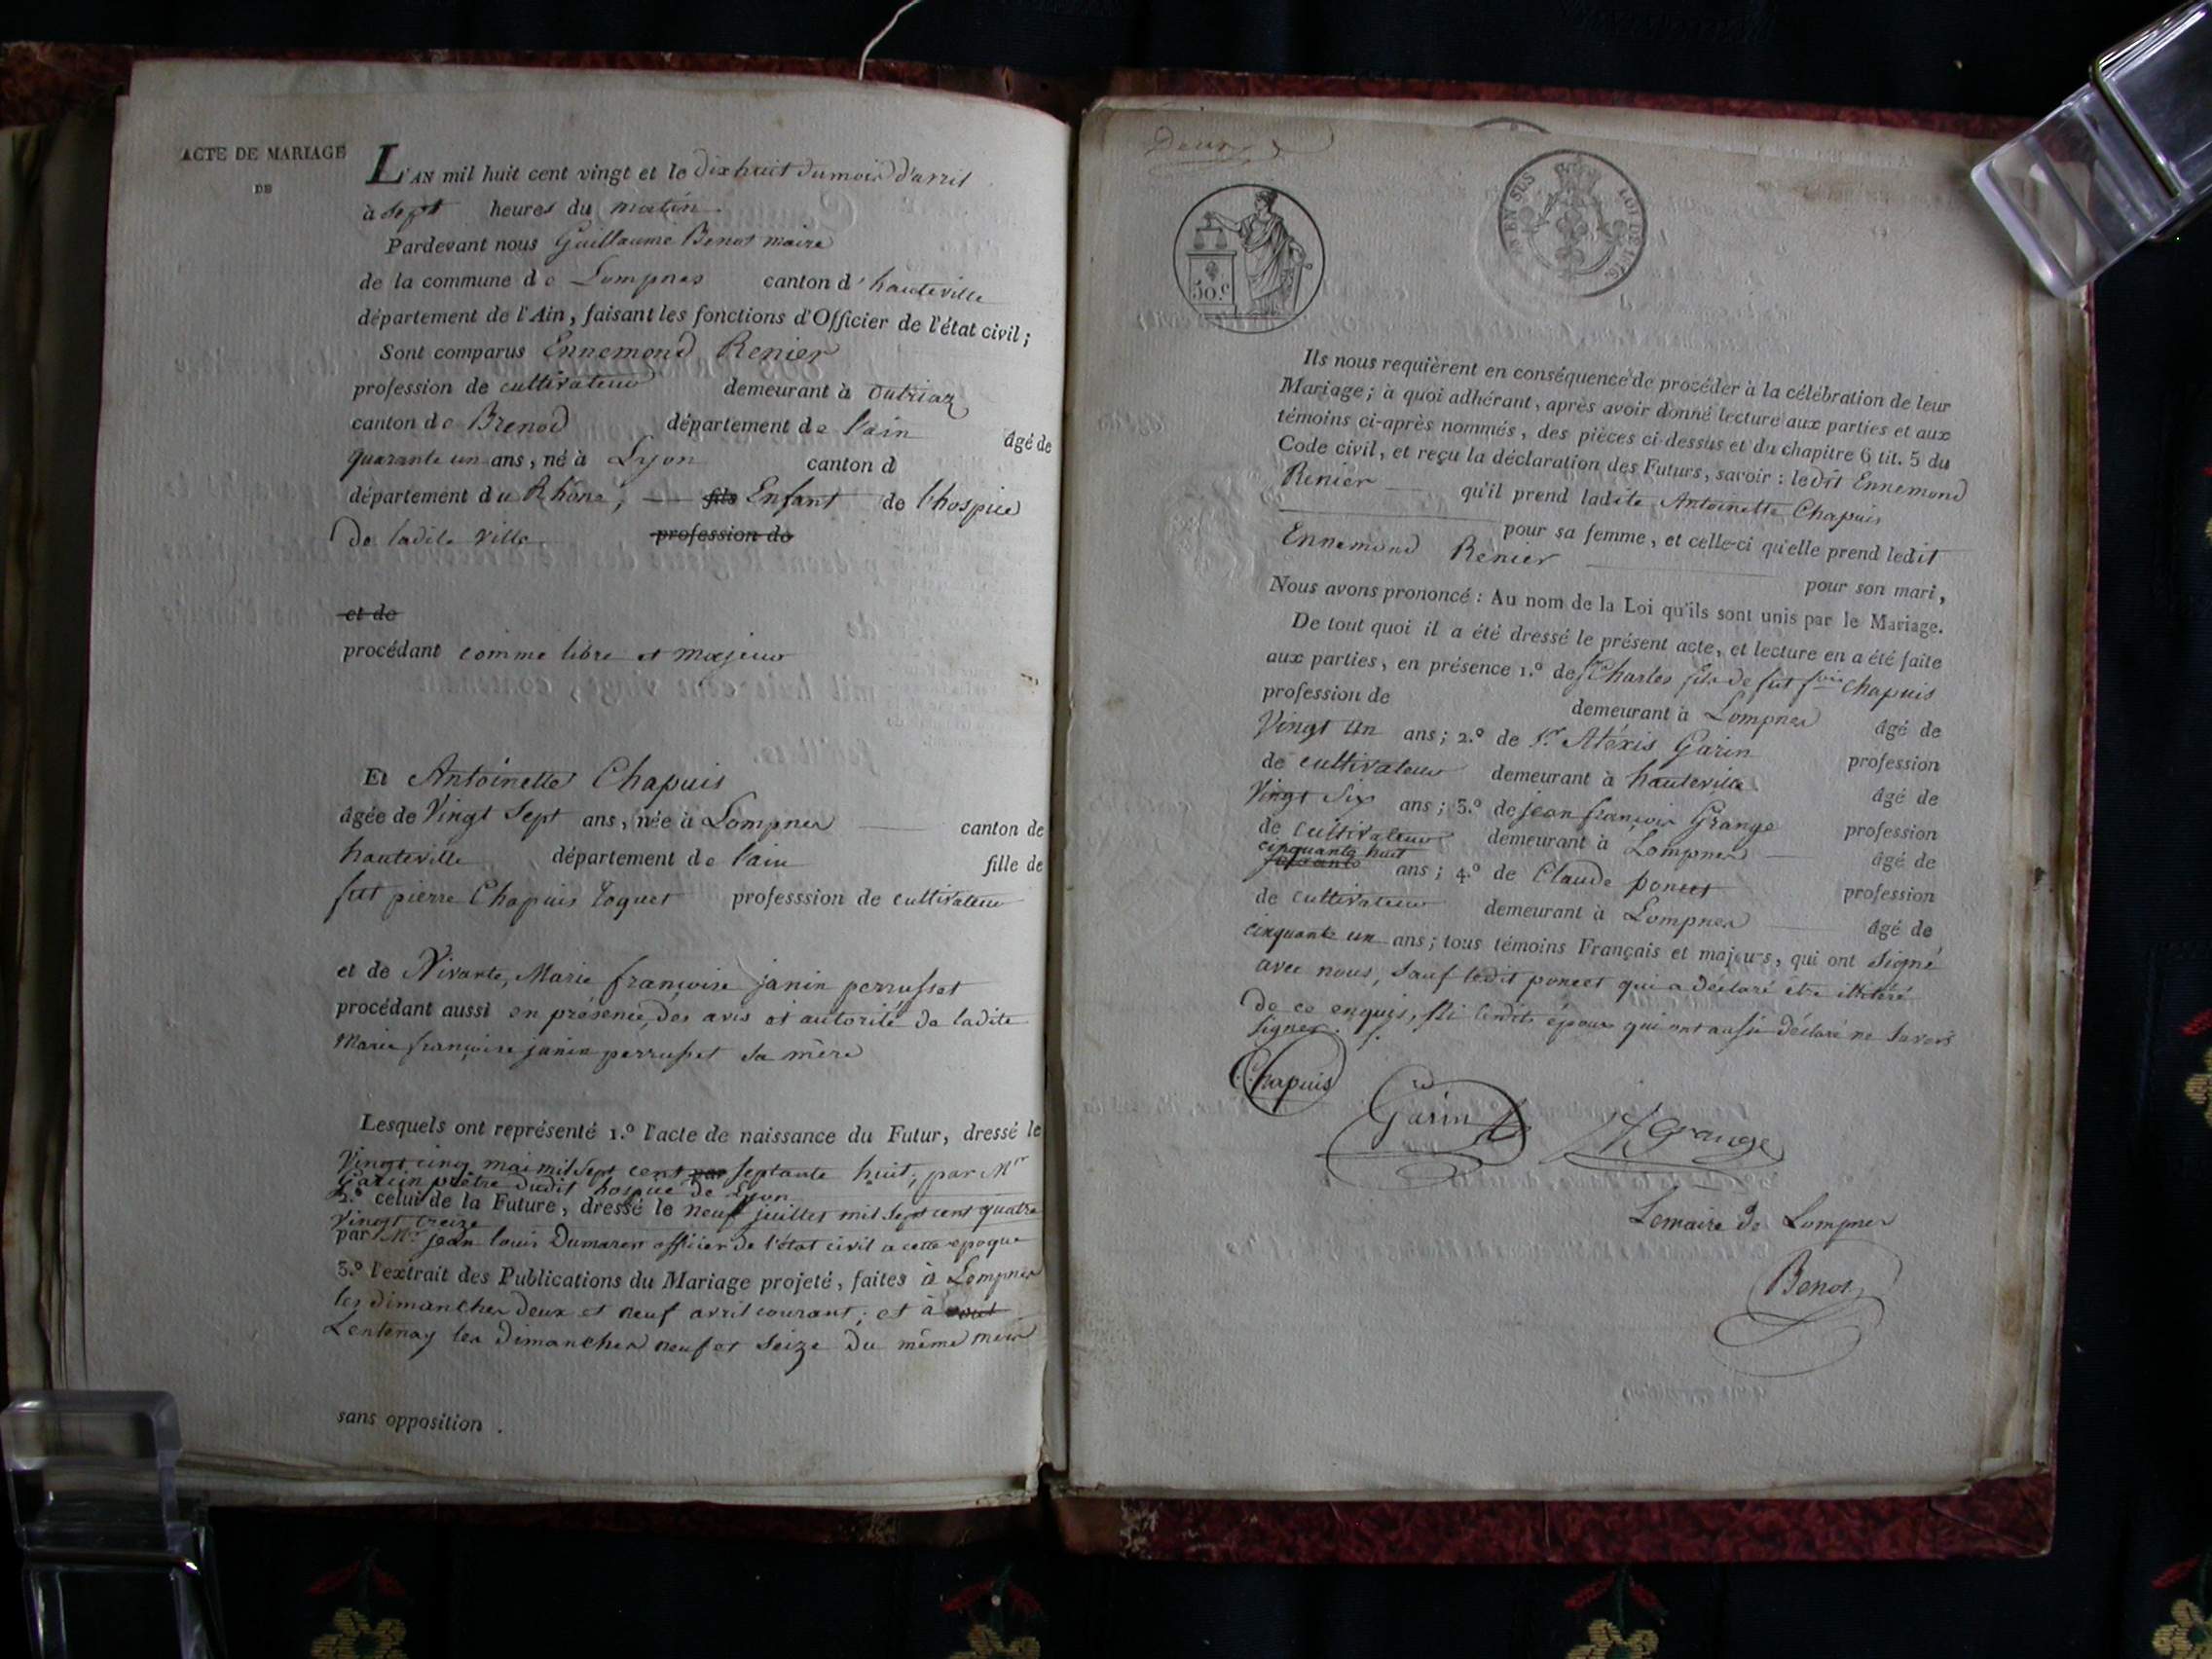 ACTE DE MARIAGE
DE
L'AN mil huit cent vingt et le dix huit du mois d'avril
à Sept heures du matin
Pardevant nous Guillaume Benot maire
de la commune de Lompnes canton d'hauteville
département de l'Ain, faisant les fonctions d'Officier de l'état civil;
Sont comparus Ennemond Renier
profession de cultivateur demeurant à outriaz
canton de Brenod département de l'ain âgé de
quarante un ans, né à Lyon canton d
département du Rhône, fils Enfant de l'hospice
De ladite ville profession de
et de
procédant comme libre et majeur
Et Antoinette Chapuis
âgée de Vingt Sept ans, née à Lompnes canton de
hauteville département de l'ain fille de
fut pierre Chapuis Toquet professsion de cultivateur
et de Vivante, Marie françoise janin perrusset
procédant aussi en présence, des avis et autorité de ladite
Marie françoise janin perrusset sa mère
Lesquels ont représenté 1.º l'acte de naissance du Futur, dressé le
Vingt cinq mai mil Sept cent par septante huit, par Mr
Garcin prêtre dudit hospice de Lyon
2.º celui de la Future, dressé le neuf juillet mil Sept cent quatre
Vingt treize
par Mr jean louis Dumarest officier de l'état civil a cette epoque
3.º l'extrait des Publications du Mariage projeté, faites à Lompnes
les dimanches deux et neuf avril courant; et à
Lentenay les dimanches neuf et Seize du même mois
sans opposition.
Deux
50.c
EN SUS LOI DE 1816
Ils nous requièrent en conséquence de procéder à la célébration de leur
Mariage; à quoi adhérant, après avoir donné lecture aux parties et aux
témoins ci-après nommés, des pièces ci-dessus et du chapitre 6 tit. 5 du
Code civil, et reçu la déclaration des Futurs, savoir: ledit Ennemond
Renier qu'il prend ladite Antoinette Chapuis
pour sa femme, et celle-ci qu'elle prend ledit
Ennemond Renier
pour son mari,
Nous avons prononcé: Au nom de la Loi qu'ils sont unis par le Mariage.
De tout quoi il a été dressé le présent acte, et lecture en a été faite
aux parties, en présence 1.º de Sr Charles fils de fut fois Chapuis
profession de demeurant à Lompnes âgé de
Vingt un ans; 2.º de Sr Alexis Garin profession
de cultivateur demeurant à hauteville âgé de
Vingt Six ans; 3.º de jean françois Grange profession
de cultivateur demeurant à Lompnes âgé de
cinquante huit
soixante ans; 4.º de Claude poncet profession
de cultivateur demeurant à Lompnes âgé de
cinquante un ans; tous témoins Français et majeurs, qui ont Signé
avec nous, Sauf ledit poncet qui a déclaré etre illitéré
De ce enquis, Ni lesdits époux qui ont aussi déclaré ne Savoir
Signer.
Chapuis
Garin
Grange
Lemaire de Lompnes
Benot